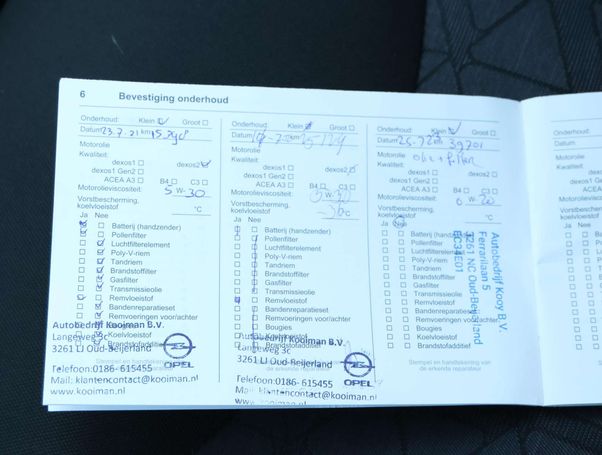 6 Bevestiging onderhoud
Onderhoud: Klein Groot
Datum 23.7.21 km
Motorolie
Kwaliteit:
dexos1 dexos2
dexos1 Gen2
ACEA A3 B4 C3
Motorolieviscositeit:
5 W-30
Vorstbescherming,
koelvloeistof °C
Ja Nee
Batterij (handzender)
Pollenfilter
Luchtfilterelement
Poly-V-riem
Tandriem
Brandstoffilter
Gasfilter
Transmissieolie
Remvloeistof
Bandenreparatieset
Remvoeringen voor/achter
Koelvloeistof
Brandstofadditief
Autobedrijf Kooiman B.V.
Langeweg 3c
3261 LJ Oud-Beijerland
OPEL
Telefoon:0186- 615455
Mail: klantencontact@kooiman.nl
www.kooiman.nl
Onderhoud: Klein Groot
Datum km
Motorolie
Kwaliteit:
dexos1 dexos2
dexos1 Gen2
ACEA A3 B4 C3
Motorolieviscositeit:
W-30
Vorstbescherming,
koelvloeistof
Ja Nee
Batterij (handzender)
Pollenfilter
Luchtfilterelement
Poly-V-riem
Tandriem
Brandstoffilter
Gasfilter
Transmissieolie
Remvloeistof
Bandenreparatieset
Remvoeringen voor/achter
Bougies
Koelvloeistof
Brandstofadditief
Autobedrijf Kooiman B.V.
Langeweg 3c
3261 LJ Oud-Beijerland
OPEL
Telefoon:0186- 615455
Mail: klantencontact@kooiman.nl
www.kooiman.nl
Onderhoud: Klein Groot
Datum km 39701
Motorolie olie + filter
Kwaliteit:
dexos1 dexos2
dexos1 Gen2
ACEA A3 B4 C3
Motorolieviscositeit:
0 W-20
Vorstbescherming,
koelvloeistof °C
Ja Nee
Batterij (handzender)
Pollenfilter
Luchtfilterelement
Poly-V-riem
Tandriem
Brandstoffilter
Gasfilter
Transmissieolie
Remvloeistof
Bandenreparatieset
Remvoeringen voor/achter
Bougies
Koelvloeistof
Brandstofadditief
Stempel en handtekening van
de erkende reparateur
Autobedrijf Kooy B.V.
Ferrarilaan 5
3261 NC Oud-Beijerland
Onderhoud:
Datum
Motorolie
Kwaliteit:
Motorolieviscositeit:
Vorstbescherming,
koelvloeistof
Ja Nee